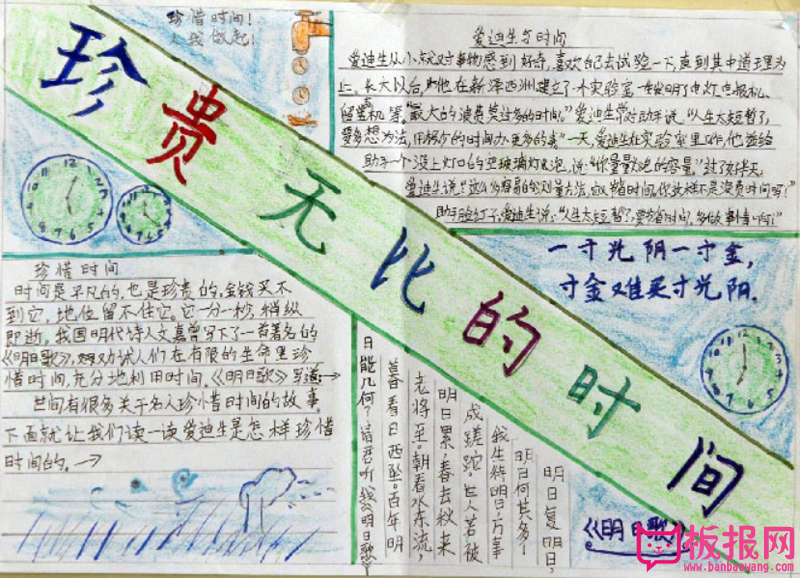 珍惜时间!
从我做起!
珍贵无比的时间
爱迪生与时间
爱迪生从小就对事物感到好奇,喜欢自己去试验一下,直到其中道理为
止。长大以后,他在新泽西洲建立了一个实验室,一生发明了电灯、电报机、
留声机等。“最大的浪费莫过多的时间。”爱迪生常对助手说。“人生太短暂了,
要多想办法,用极少的时间办更多的事”一天,爱迪生在实验室里工作,他递给
助手一个没上灯口的空玻璃灯泡,说:“你量量灯泡的容量。”过了好半天,
时间,你这样不是浪费时间吗?”
爱迪生说:“人生太短暂了,要节省时间,多做事情啊!”
一寸光阴一寸金,
寸金难买寸光阴.
珍惜时间
时间是平凡的,也是珍贵的,金钱买不
到它,地位留不住它。它一分一秒,稍纵
即逝,我国明代诗人文嘉曾写下了一首著名的
《明日歌》,劝试人们在有限的生命里珍
惜时间,充分地利用时间。《明日歌》写道:
世间有很多关于名人珍惜时间的故事。
下面就让我们读一读爱迪生是怎样珍惜
时间的。
《明日歌》
明日复明日,
明日何其多!
我生待明日,万事
成蹉跎。世人若被
明日累,春去秋来
老将至。朝看水东流,
暮看日西坠。百年明
日能几何?请君听我《明日歌》
12 1 2 3 4 5 6 7 8 9 10 11
板报网
www.banbaowang.com